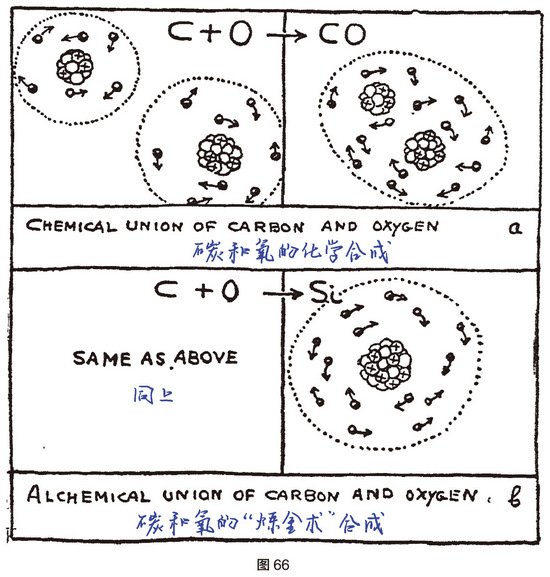 C + O → CO
CHEMICAL UNION OF CARBON AND OXYGEN a
碳和氧的化学合成
C + O → Si
SAME AS ABOVE
同上
ALCHEMICAL UNION OF CARBON AND OXYGEN. b
碳和氧的“炼金术”合成
图 66